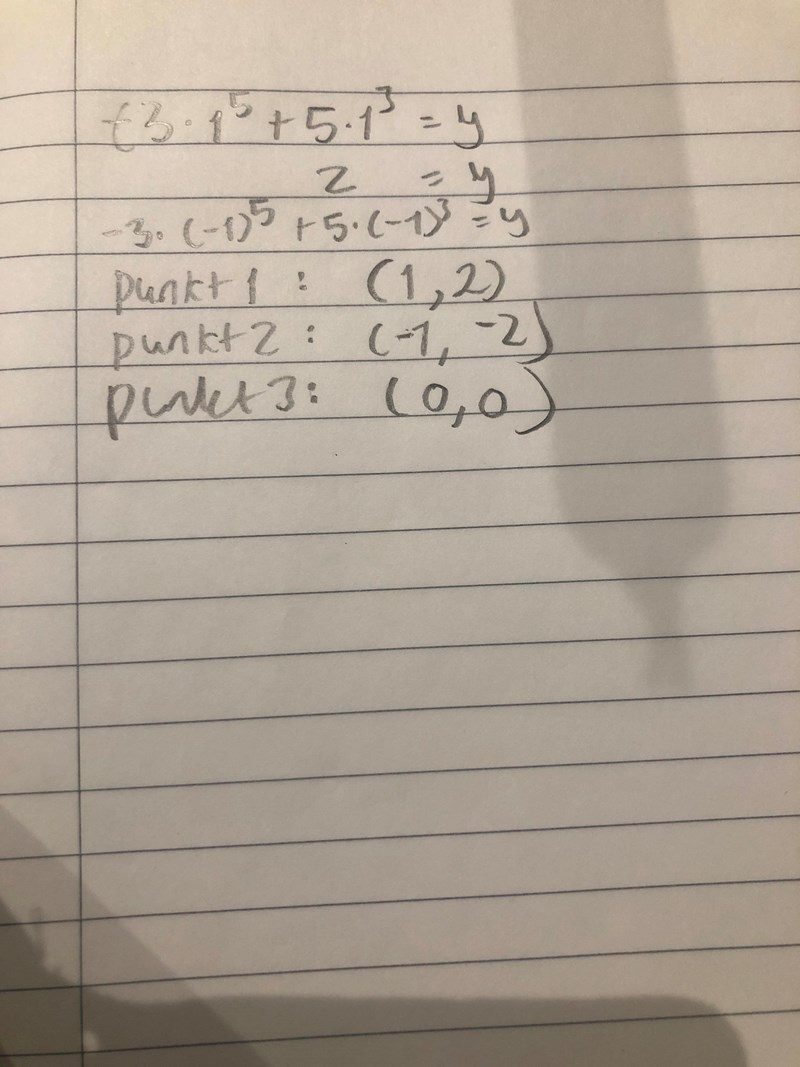 -3·1⁵ + 5·1³ = y
2 = y
-3·(-1)⁵ + 5·(-1)³ = y
punkt 1 : (1,2)
punkt 2 : (-1, -2)
punkt 3: (0,0)